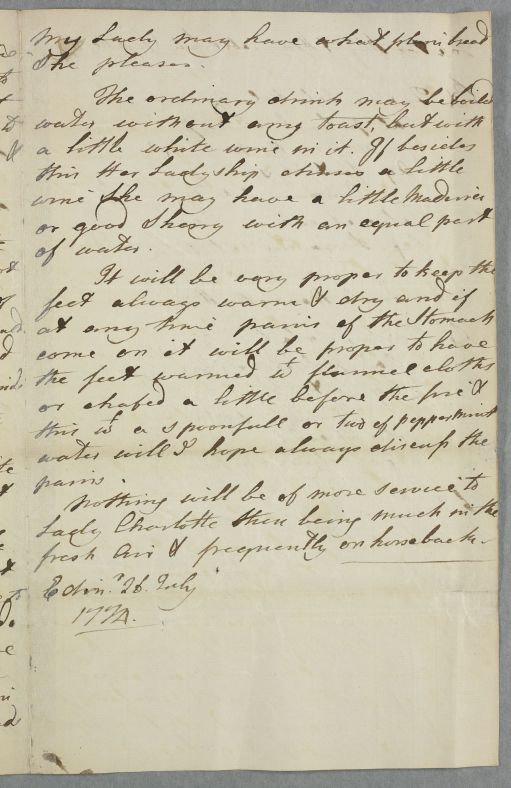 My Lady may have what plain bread
She pleases.
The ordinary drink may be boild
water without any toast, but with
a little white wine in it. If besides
this Her Ladyship chuses a little
wine She may have a little Madeira
or good Sherry with an equal part
of water.
It will be very proper to keep the
feet always warm & dry and if
at any time pains of the Stomach
come on it will be proper to have
the feet warmed wt flannel cloths
or chafed a little before the fire &
this wt a spoonfull or two of peppermint
water will I hope always discuss the
pains.
Nothing will be of more service to
Lady Charlotte than being much in the
fresh Air & frequently on horseback.
Edinr. 26. July
1774.